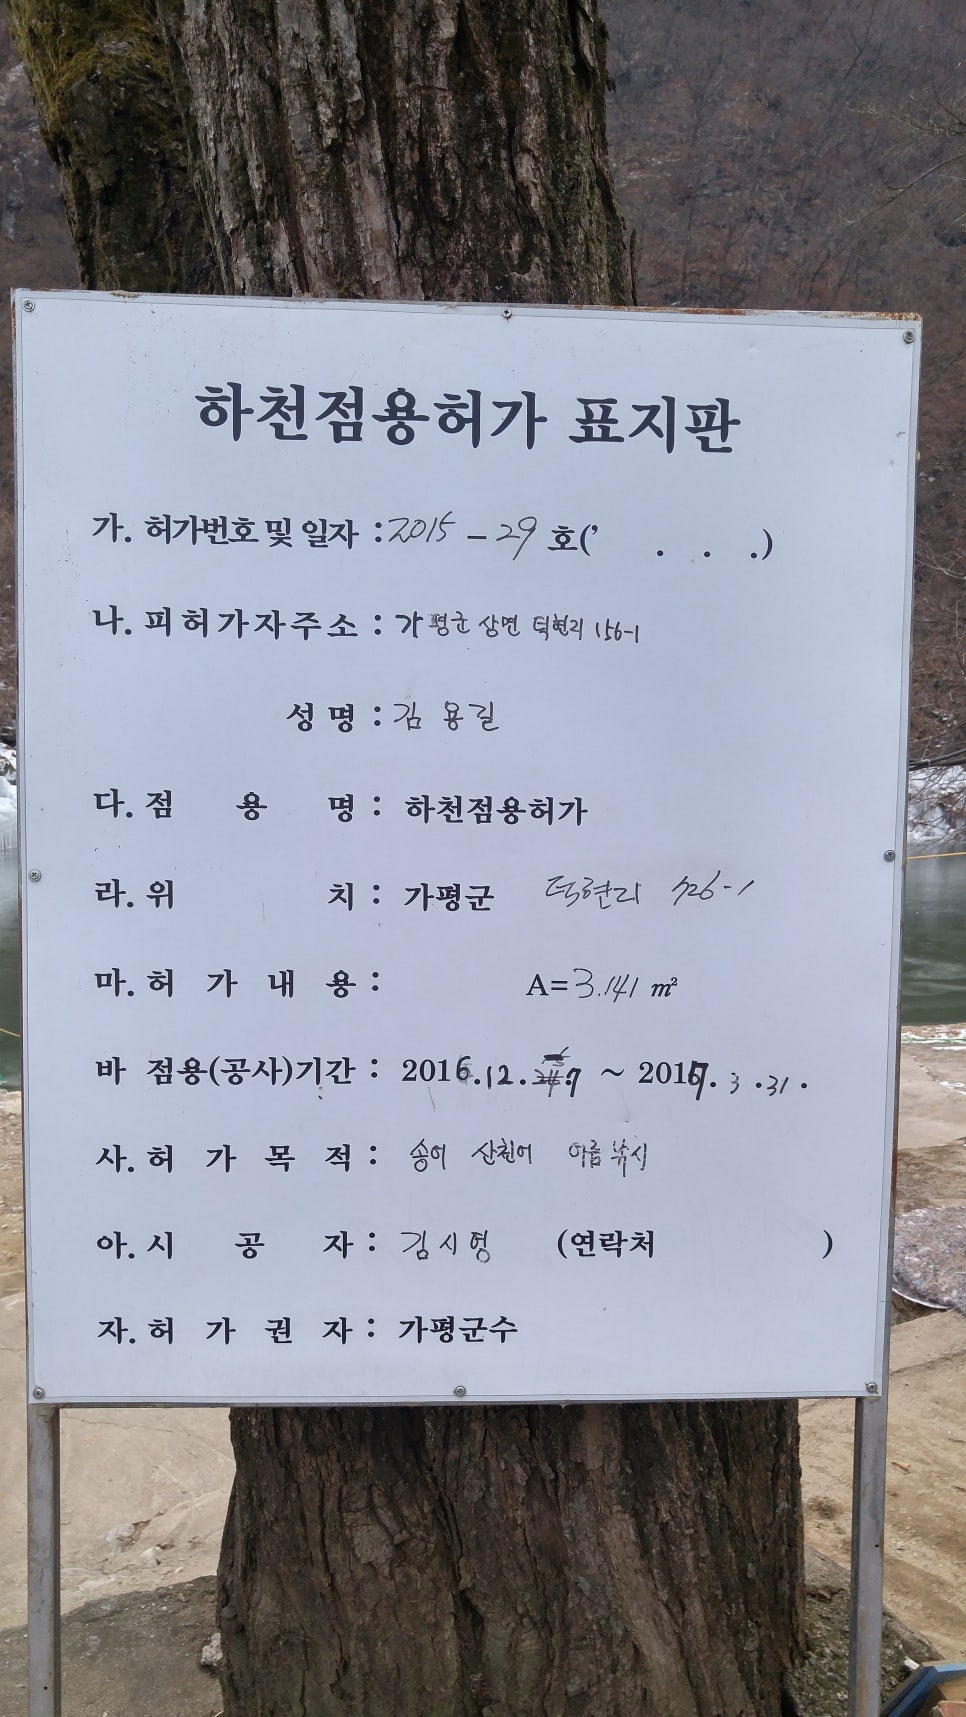 하천점용허가 표지판
가. 허가번호 및 일자 : 2015 - 29 호(' . . .)
나. 피허가자주소 : 가평군 상면 덕현리 156-1
성명 : 김용길
다. 점용명 : 하천점용허가
라. 위치 : 가평군 덕현리
마. 허가내용 : A=3.141 m²
바 점용(공사)기간 : 2016.12. ~ 2017.3.31.
사. 허가목적 : 송어 산천어 어름 낚시
아. 시공자 : 김시영 (연락처 )
자. 허가권자 : 가평군수